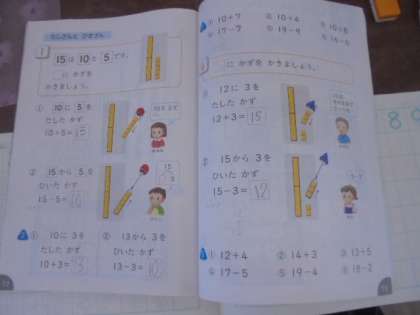 たしざんと ひきざん
1
15は 10と 5です。
□に かずを
かきましょう。
① 10に 5を
たした かず
10+5=15
② 15から 5を
ひいた かず
15-5=10
2
① 10に 3を
たした かず
10+3=13
② 13から 3を
ひいた かず
13-3=10
① 10+7
② 10+4
③ 10+8
④ 17-7
⑤ 19-9
□に かずを かきましょう。
① 12に 3を
たした かず
12+3=15
② 15から 3を
ひいた かず
15-3=12
① 12+4
② 14+3
③ 13+5
④ 17-5
⑤ 19-4
⑥ 18-2
89